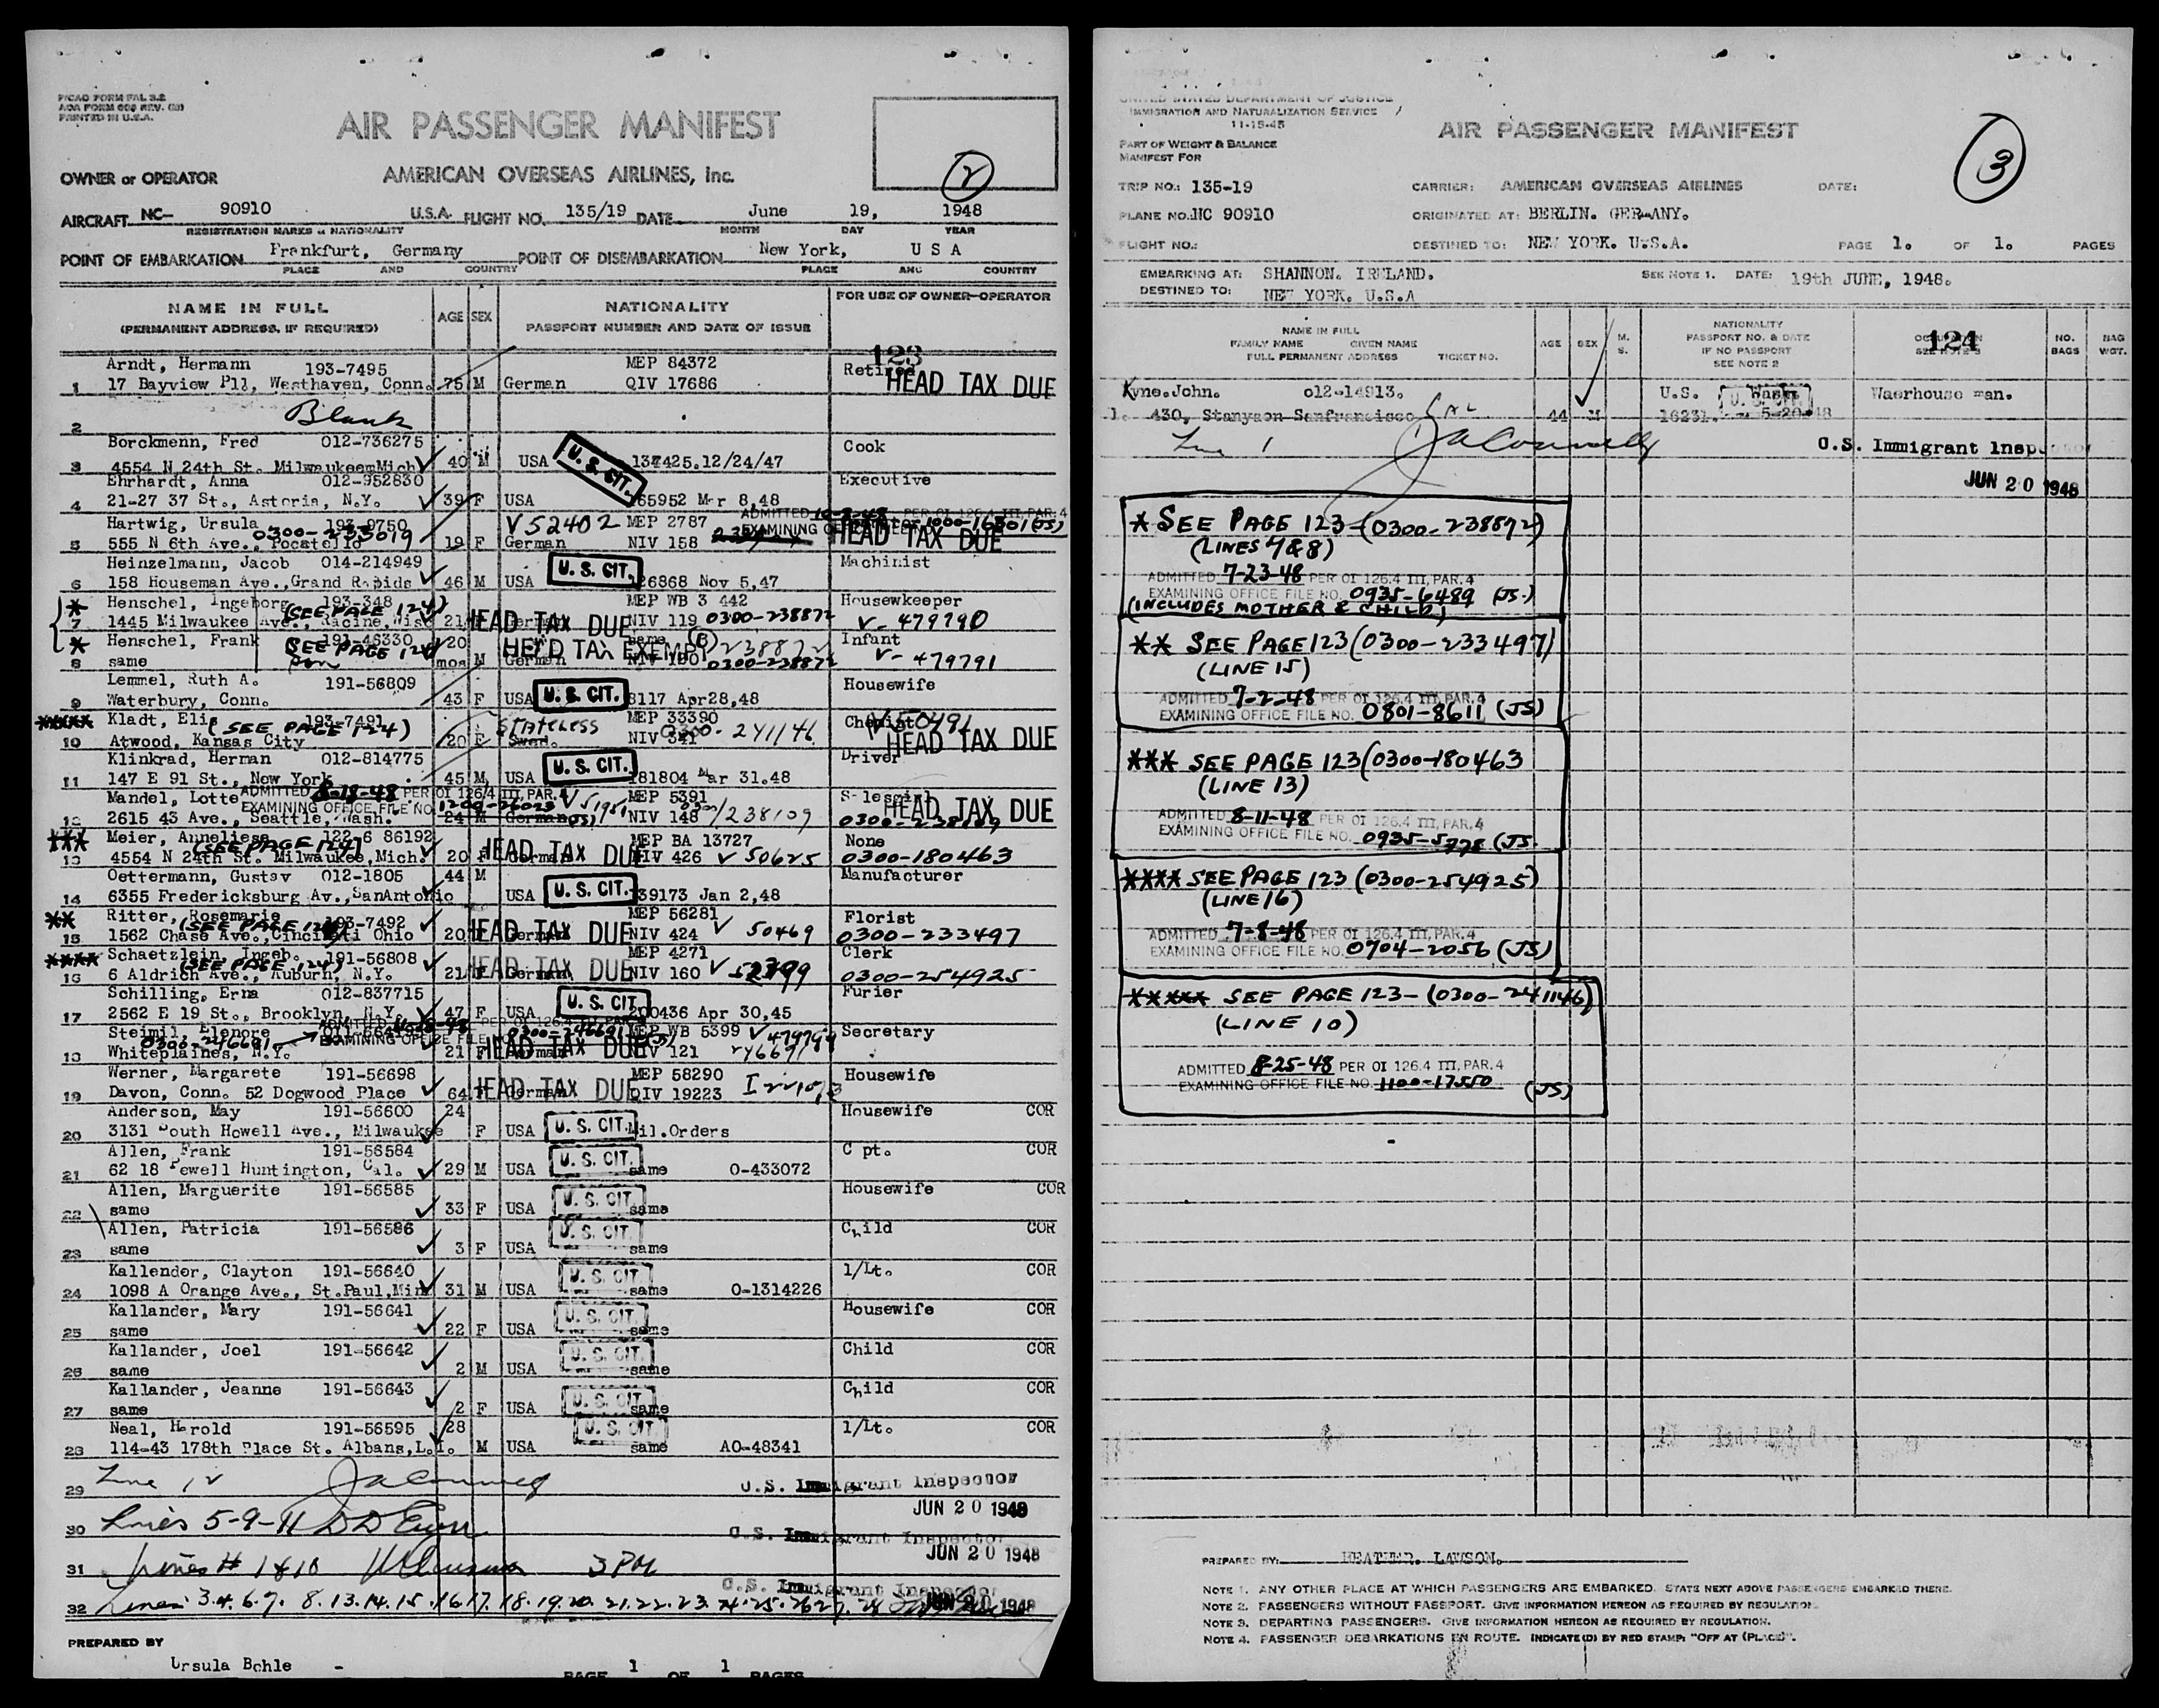 PICAO FORM FAL 3.2
AOA FORM 606 REV. (B)
PRINTED IN U.S.A.
AIR PASSENGER MANIFEST
2
OWNER or OPERATOR AMERICAN OVERSEAS AIRLINES, Inc.
AIRCRAFT NC- 90910 U.S.A. FLIGHT NO. 135/19 DATE June 19, 1948
REGISTRATION MARKS & NATIONALITY MONTH DAY YEAR
POINT OF EMBARKATION Frankfurt, Germany POINT OF DISEMBARKATION New York, U S A
PLACE AND COUNTRY PLACE AND COUNTRY
NAME IN FULL AGE SEX NATIONALITY FOR USE OF OWNER-OPERATOR
(PERMANENT ADDRESS, IF REQUIRED) PASSPORT NUMBER AND DATE OF ISSUE
123
Arndt, Hermann 193-7495 MEP 84372 Retired
1 17 Bayview Pll, Westhaven, Conn. 75 M German QIV 17686 HEAD TAX DUE
2 Blank
Borckmenn, Fred 012-736275 Cook
3 4554 N 24th St. MilwaukeemMich 40 M USA U. S. CIT. 137425.12/24/47
Ehrhardt, Anna 012-952630 Executive
4 21-27 37 St., Astoria, N.Y. 39 F USA 65952 Mar 8,48
Hartwig, Ursula 193-9750 V52402 MEP 2787 ADMITTED 10-8-48 PER OI 126.4 III, PAR.4
0300-233019 EXAMINING OFFICE FILE 1000-16501 (JS)
5 555 N 6th Ave., Pocatello 19 F German NIV 158 HEAD TAX DUE
Heinzelmann, Jacob 014-214949 Machinist
6 158 Houseman Ave., Grand Rapids 46 M USA U. S. CIT. 26868 Nov 5,47
* Henschel, Ingeborg 193-348 (SEE PAGE 124) MEP WB 3 442 Housewkeeper
7 1445 Milwaukee Ave., Racine, Wisc 21 HEAD TAX DUE German NIV 119 0300-238872 V-479790
* Henschel, Frank 191-46330 SEE PAGE 124 20 same Infant
8 same mos M HEAD TAX EXEMPT German NIV 190 0300-238872 V-479791
Lemmel, Ruth A. 191-56809 Housewife
9 Waterbury, Conn. 43 F USA U. S. CIT. 8117 Apr28,48
***** Kladt, Elis 193-7491 (SEE PAGE 124) STATELESS MEP 33390 Chemist V50491
10 Atwood, Kansas City 20 F Swed. NIV 341 0300-241146 HEAD TAX DUE
Klinkrad, Herman 012-814775 Driver
11 147 E 91 St., New York 45 M USA U. S. CIT. 181804 Mar 31.48
Mandel, Lotte ADMITTED 8-18-48 PER OI 126/4 III, PAR.4 MEP 5391 Salesgirl
EXAMINING OFFICE FILE NO. 1200-26023 V51951 HEAD TAX DUE
12 2615 43 Ave., Seattle, Wash. 24 M German (JS) NIV 148 0300/238109 0300-238109
*** Meier, Anneliese 122-6 86192 (SEE PAGE 124) MEP BA 13727 None
13 4554 N 24th St. Milwaukee, Mich. 20 F HEAD TAX DUE German NIV 426 V 50625 0300-180463
Oettermann, Gustav 012-1805 44 M Manufacturer
14 6355 Fredericksburg Av., SanAntonio USA U. S. CIT. 139173 Jan 2,48
** Ritter, Rosemarie 193-7492 (SEE PAGE 124) MEP 56281 Florist
15 1562 Chase Ave., Cincinnati Ohio 20 HEAD TAX DUE German NIV 424 V 50469 0300-233497
**** Schaetzlein, Ingeb. 191-56808 (SEE PAGE 124) MEP 4271 Clerk
16 6 Aldrich Ave., Auburn, N.Y. 21 F HEAD TAX DUE German NIV 160 V 52399 0300-254925
Schilling, Erna 012-837715 Furier
17 2562 E 19 St., Brooklyn, N.Y. 47 F USA U. S. CIT. 200436 Apr 30,45
Steimil, Elenore ADMITTED PER OI 126.4 III, PAR.4 MEP WB 5399 V479799 Secretary
0300-246691 EXAMINING OFFICE FILE 0300-246691
18 Whiteplaines, N.Y. 21 F German HEAD TAX DUE NIV 121 246691
Werner, Margarete 191-56698 MEP 58290 Housewife
19 Davon, Conn. 52 Dogwood Place 64 F HEAD TAX DUE German QIV 19223
Anderson, May 191-56600 24 Housewife COR
20 3131 South Howell Ave., Milwaukee F USA U. S. CIT. Mil.Orders
Allen, Frank 191-56584 Capt. COR
21 62 18 Pewell Huntington, Cal. 29 M USA U. S. CIT. same O-433072
Allen, Marguerite 191-56585 Housewife COR
22 same 33 F USA U. S. CIT. same
Allen, Patricia 191-56586 Child COR
23 same 3 F USA U. S. CIT. same
Kallender, Clayton 191-56640 1/Lt. COR
24 1098 A Orange Ave., St.Paul,Min 31 M USA U. S. CIT. same O-1314226
Kallander, Mary 191-56641 Housewife COR
25 same 22 F USA U. S. CIT. same
Kallander, Joel 191-56642 Child COR
26 same 2 M USA U. S. CIT. same
Kallander, Jeanne 191-56643 Child COR
27 same 2 F USA U. S. CIT. same
Neal, Harold 191-56595 28 1/Lt. COR
28 114-43 178th Place St. Albans,L.I. M USA U. S. CIT. same AO-48341
29 Line 12 U.S. Immigrant Inspector
JUN 20 1948
30 Lines 5-9-11 U.S. Immigrant Inspector
JUN 20 1948
31 Lines # 1 & 10 3 PM
U.S. Immigrant Inspector
32 Lines 3.4.6.7. 8.13.14.15.16.17.18.19.20.21.22.23.24.25.26.27.28 JUN 20 1948
PREPARED BY
Ursula Bohle -
PAGE 1 OF 1 PAGES
UNITED STATES DEPARTMENT OF JUSTICE
IMMIGRATION AND NATURALIZATION SERVICE
11-15-45
AIR PASSENGER MANIFEST
3
PART OF WEIGHT & BALANCE
MANIFEST FOR
TRIP NO.: 135-19 CARRIER: AMERICAN OVERSEAS AIRLINES DATE:
PLANE NO.: NC 90910 ORIGINATED AT: BERLIN. GERMANY.
FLIGHT NO.: DESTINED TO: NEW YORK. U.S.A. PAGE 1. OF 1. PAGES
EMBARKING AT: SHANNON. IRELAND. SEE NOTE 1. DATE: 19th JUNE, 1948.
DESTINED TO: NEW YORK. U.S.A
NAME IN FULL AGE SEX M. S. NATIONALITY 124 NO. BAGS BAG WGT.
FAMILY NAME GIVEN NAME PASSPORT NO. & DATE OCCUPATION
FULL PERMANENT ADDRESS TICKET NO. IF NO PASSPORT SEE NOTE 2
Kyne.John. o12-14913. U.S. Wash. Waerhouse man.
1. 430, Stanyaon Sanfrancisco CAL 44 M 16231. U. S. CIT. 5-20-48
Line 1 U.S. Immigrant Inspector
JUN 20 1948
* SEE PAGE 123-(0300-238872)
(LINES 7 & 8)
ADMITTED 7-23-48 PER OI 126.4 III, PAR. 4
EXAMINING OFFICE FILE NO. 0935-6489 (JS.)
(INCLUDES MOTHER & CHILD)
** SEE PAGE 123 (0300-233497)
(LINE 15)
ADMITTED 7-2-48 PER OI 126.4 III, PAR. 4
EXAMINING OFFICE FILE NO. 0801-8611 (JS)
*** SEE PAGE 123 (0300-180463
(LINE 13)
ADMITTED 8-11-48 PER OI 126.4 III, PAR. 4
EXAMINING OFFICE FILE NO. 0935-5778 (JS.
**** SEE PAGE 123 (0300-254925)
(LINE 16)
ADMITTED 7-8-48 PER OI 126.4 III, PAR. 4
EXAMINING OFFICE FILE NO. 0704-2056 (JS)
***** SEE PAGE 123-(0300-241146)
(LINE 10)
ADMITTED 8-25-48 PER OI 126.4 III, PAR. 4
EXAMINING OFFICE FILE NO. 1100-17550 (JS)
PREPARED BY: HEATHER. LAWSON.
NOTE 1. ANY OTHER PLACE AT WHICH PASSENGERS ARE EMBARKED. STATE NEXT ABOVE PASSENGERS EMBARKED THERE.
NOTE 2. PASSENGERS WITHOUT PASSPORT. GIVE INFORMATION HEREON AS REQUIRED BY REGULATION.
NOTE 3. DEPARTING PASSENGERS. GIVE INFORMATION HEREON AS REQUIRED BY REGULATION.
NOTE 4. PASSENGER DEBARKATIONS EN ROUTE. INDICATE(D) BY RED STAMP: "OFF AT (PLACE)".